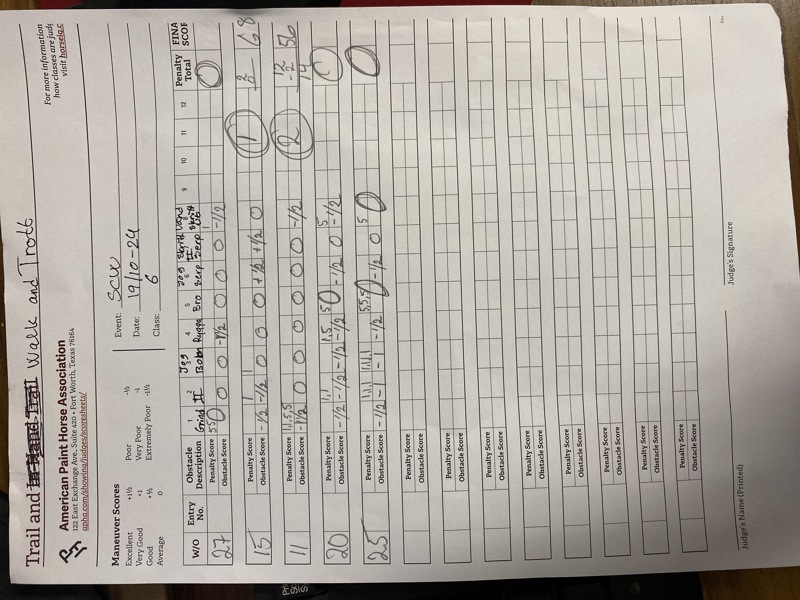 Trail and Walk and Trott
For more information
how classes are judg
visit horseia.c
American Paint Horse Association
122 East Exchange Ave., Suite 420 • Fort Worth, Texas 76164
apha.com/showing/judges/scoresheets/
Event: SCW
Date: 19/10-24
Class: 6
Maneuver Scores
Excellent +1½ Poor -½
Very Good +1 Very Poor -1
Good +½ Extremely Poor -1½
Average 0
W/O Entry No. Obstacle Description 1 2 3 4 5 6 7 8 9 10 11 12 Penalty Total FINA SCOR
Grind II Jog Bom Rygga Bro Jog Serp Skritt II Serp Vänd Skritt
27 Penalty Score 5 5 1 0
Obstacle Score 0 0 0 -1/2 0 0 0 -1/2
15 Penalty Score 1 1 1 68
Obstacle Score -1/2 -1/2 0 0 0 +1/2 +1/2 0
11 Penalty Score 1,1,5,5 2 12 -2 14 56
Obstacle Score -1 1/2 0 0 0 0 0 0 -1/2
20 Penalty Score 1,1 1,5 5 5 0
Obstacle Score -1/2 -1/2 -1/2 -1/2 0 -1/2 0 -1/2
25 Penalty Score 1,1,1 1,1,1,1 5,5,5 5 0
Obstacle Score -1/2 -1 -1 -1/2 0 -1/2 0 0
Penalty Score
Obstacle Score
Penalty Score
Obstacle Score
Penalty Score
Obstacle Score
Penalty Score
Obstacle Score
Penalty Score
Obstacle Score
Penalty Score
Obstacle Score
Penalty Score
Obstacle Score
Penalty Score
Obstacle Score
Judge's Name (Printed) Judge's Signature